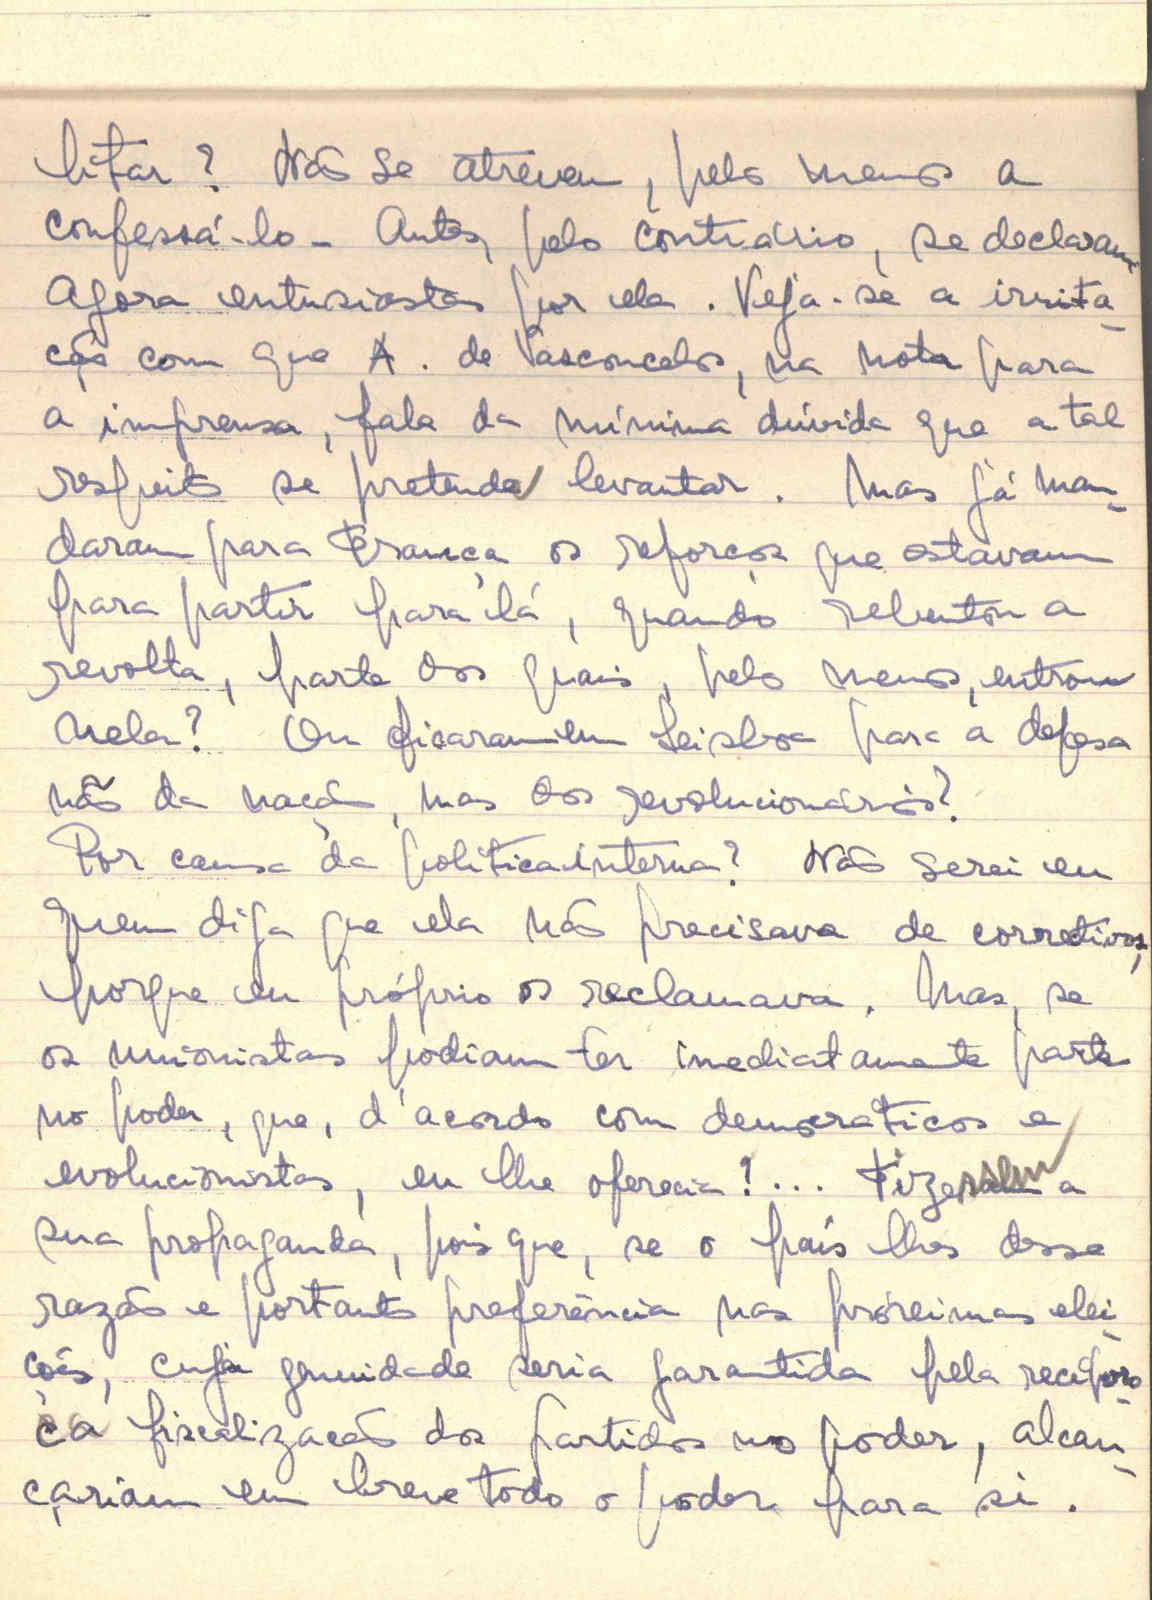 litar? Não se atrevem, pelo menos a
confessá-lo - Antes, pelo contrário, se declaram
agora entusiastas por ela. Veja-se a irrita-
ção com que A. de Vasconcelos, na nota para
a imprensa, fala da mínima dúvida que a tal
respeito se pretenda levantar. Mas já man-
daram para França os reforços que estavam
para partir para lá, quando rebentou a
revolta, parte dos quais, pelo menos, entrou
nela? Ou ficaram em Lisboa para a defesa
não da nação, mas dos revolucionários?
Por causa da politica interna? Não serei eu
quem diga que ela não precisava de corretivos,
porque eu próprio os reclamava. Mas, se
os unionistas podiam ter imediatamente parte
no poder, que, d'acordo com democráticos e
evolucionistas, eu lhe oferecia!... Fizessem a
sua propaganda, pois que, se o país lhes desse
razão e portanto preferência nas próximas elei-
ções, cuja genuidade seria garantida pela recipro-
ca fiscalização dos partidos no poder, alcan-
çariam em breve todo o poder para si.